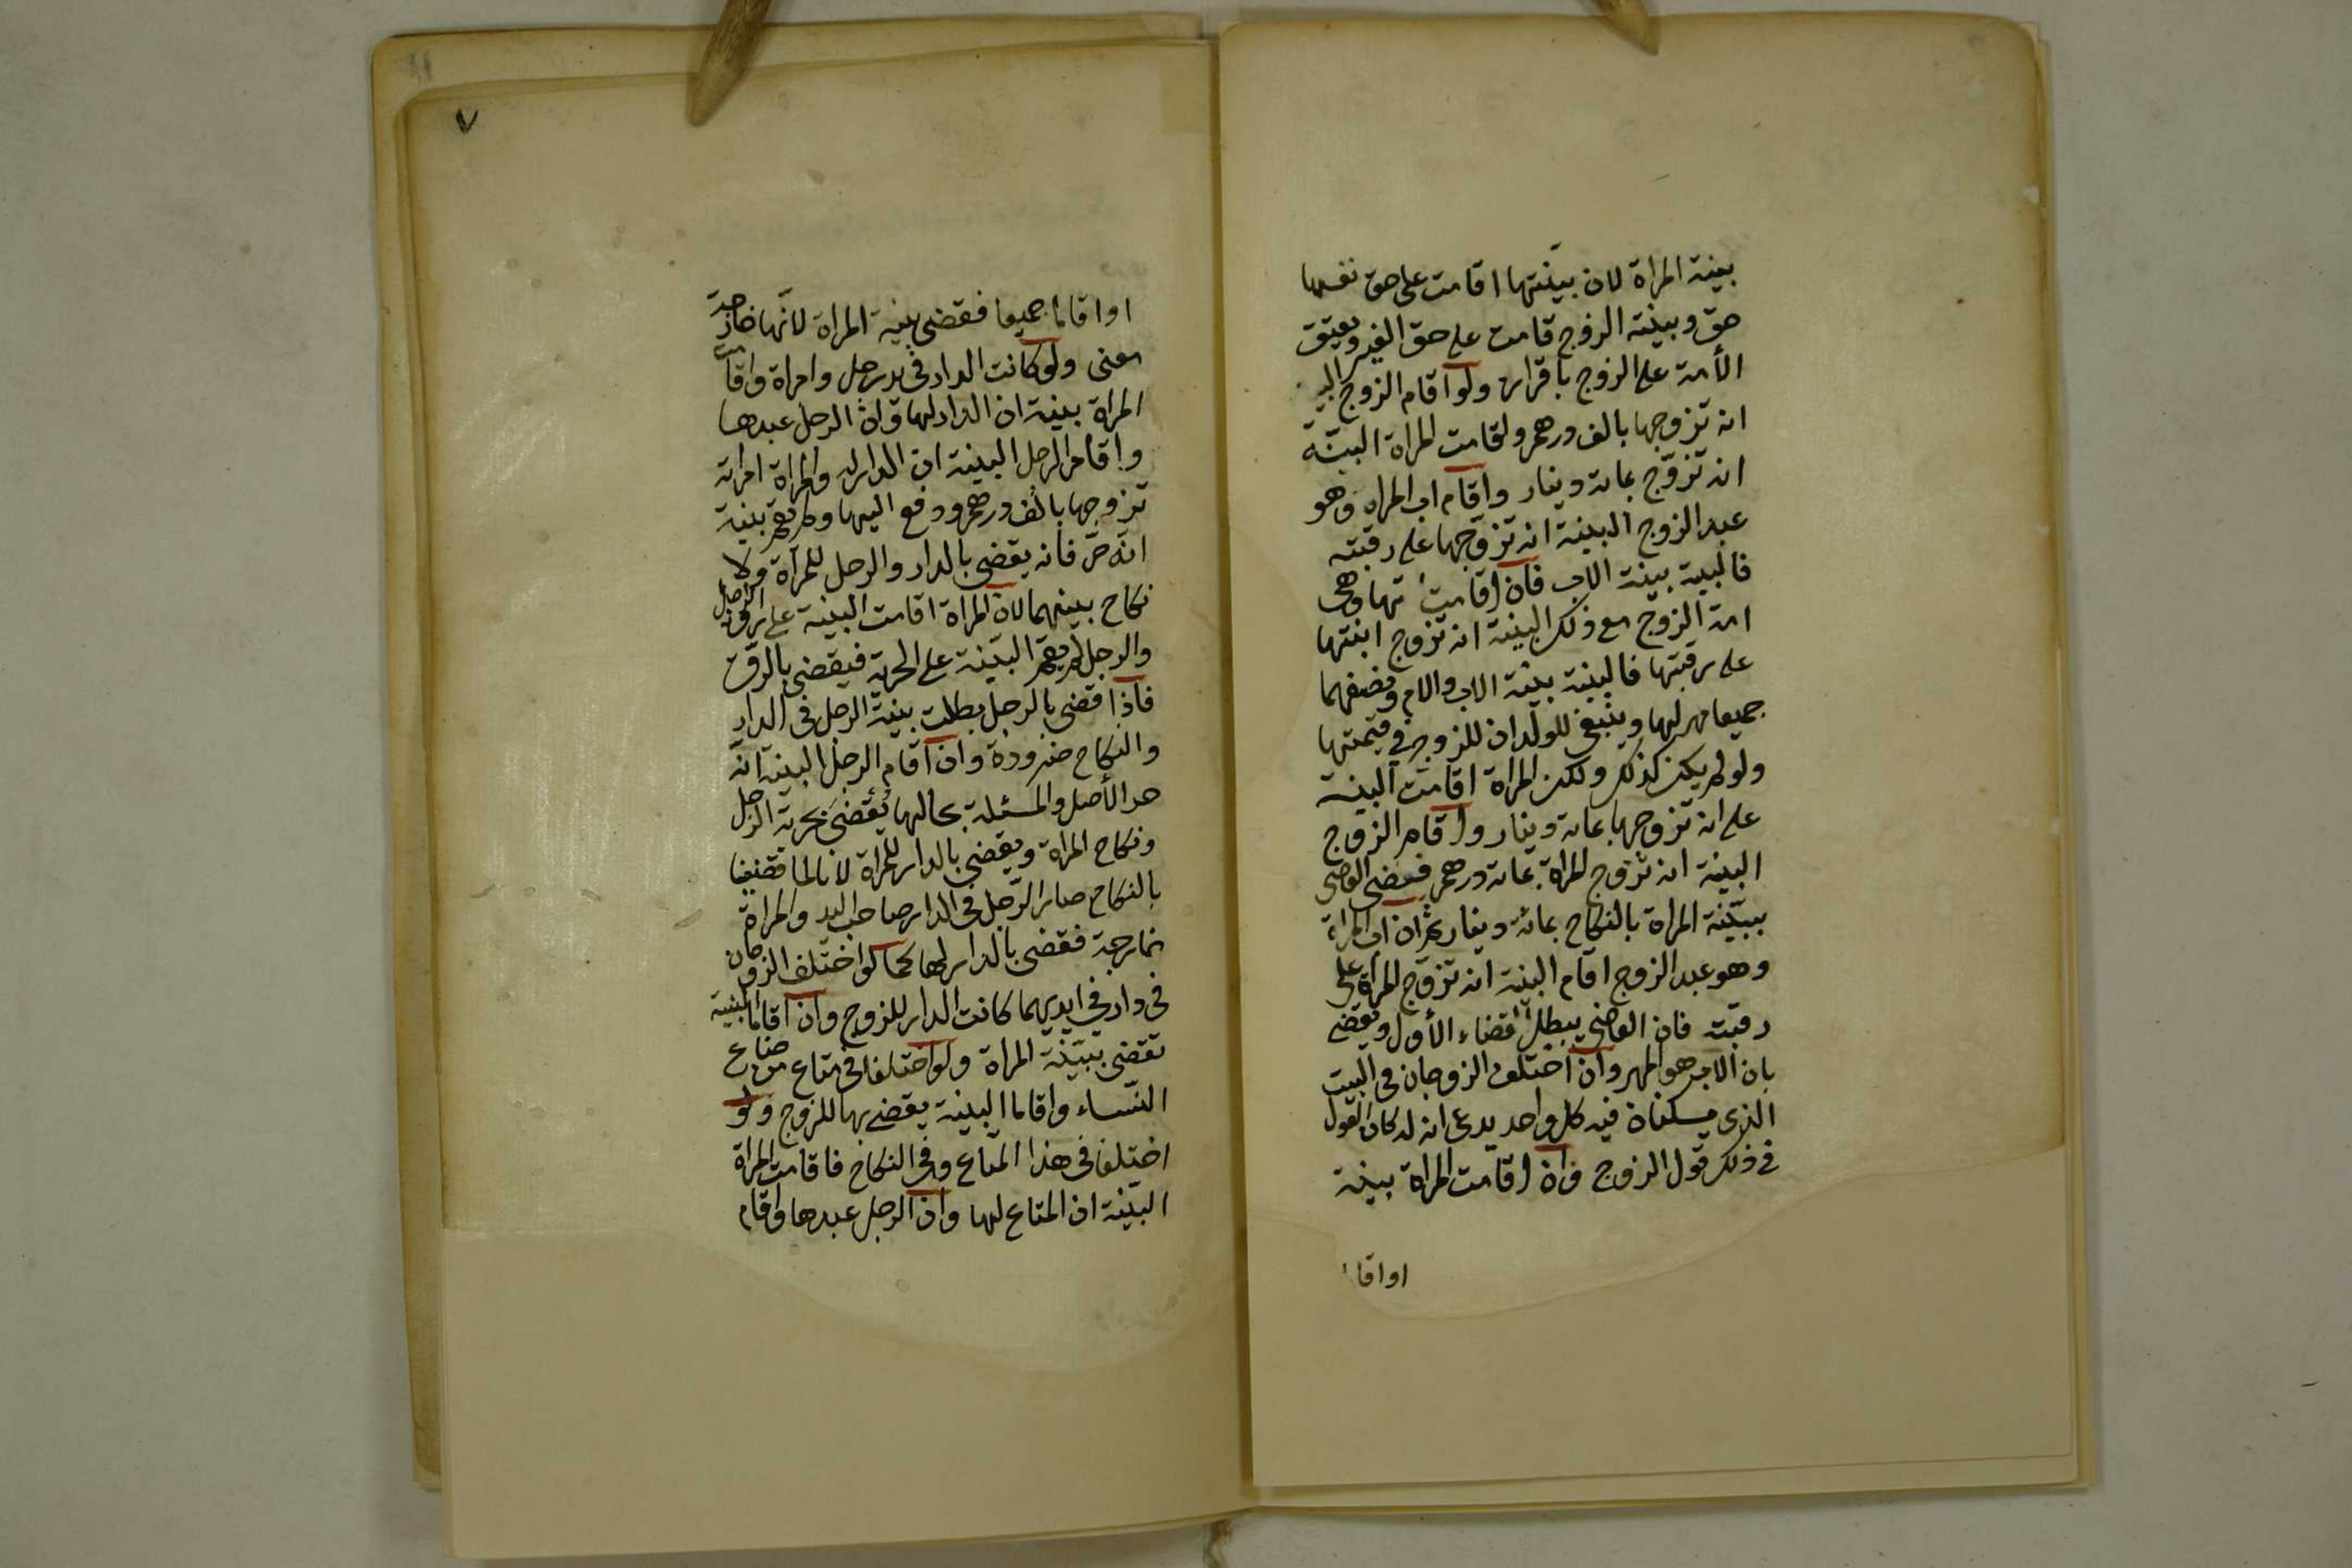 بينة المراة لان بينتها اقامت على حق نفسها
حق وبينة الزوج قامت على حق الغير ويعتق
الأمة على الزوج باقراره ولو اقام الزوج البينة
انه تزوجها بالف درهم ولقامت المراة البينة
انه تزوج بماة دينار واقام اب المراه وهو
عبد الزوج البينة انه تزوجها على رقبته
فالبينة بينة الاب فان اقامت امها وهى
امة الزوج مع ذلك البينة انه تزوج ابنتها
على رقبتها فالبينة بينة الاب والام ونصفهما
جميعا مهر لها وينبغى للولد ان للزوج فى قيمتها
ولو لم يكن كذلك ولكن المراة اقامت البينة
على انه تزوجها بماة دينار واقام الزوج
البينة انه تزوج المراة بماة درهم فقضى القاضى
ببينة المراة بالنكاح بمائة دينار ثم ان اب المراة
وهو عبد الزوج اقام البينة انه تزوج المراة على
رقبته فان القاضى يبطل قضاء الأول ويقضى
بان الاب هو المهر وان اختلف الزوجان فى البيت
الذى يسكناه فيه كل واحد يدعى انه له كان القول
فى ذلك قول الزوج وان اقامت المراة بينة
او اقاما
٧
او اقاما جميعا فقضى بينة المراة لانها خارجة
معنى ولو كانت الدار فى يد رجل وامراة واقامت
المراة بينة ان الدار لها وان الرجل عبدها
واقام الرجل البينة ان الدار له والمراة امراته
تزوجها بالف درهم ودفع اليها ولم يقم بينة
انه حر فانه يقضى بالدار والرجل للمرآة ولا
نكاح بينهما لان المراة اقامت البينة على رق الرجل
والرجل لم يقم البينة على الحرية فيقضى بالرق
فاذا قضى بالرجل بطلت بينة الرجل فى الدار
والنكاح ضرورة وان اقام الرجل البينة انه
حر الأصل والمسئلة بحالها يقضى بحرية الرجل
ونكاح المراة ويقضى بالدار للمراة لانا لما قضينا
بالنكاح صار الرجل فى الدار صاحب اليد والمراة
خارجة فقضى بالدار لها كما لو اختلف الزوجان
فى دار فى ايديهما كانت الدار للزوج وان اقاما البينة
تقضى ببينة المراة ولو اختلفا فى متاع من متاع
النساء واقاما البينة يقضى بها للزوج ولو
اختلفا فى هذا المتاع وفى النكاح فاقامت المراة
البينة ان المتاع لها وان الرجل عبدها واقام